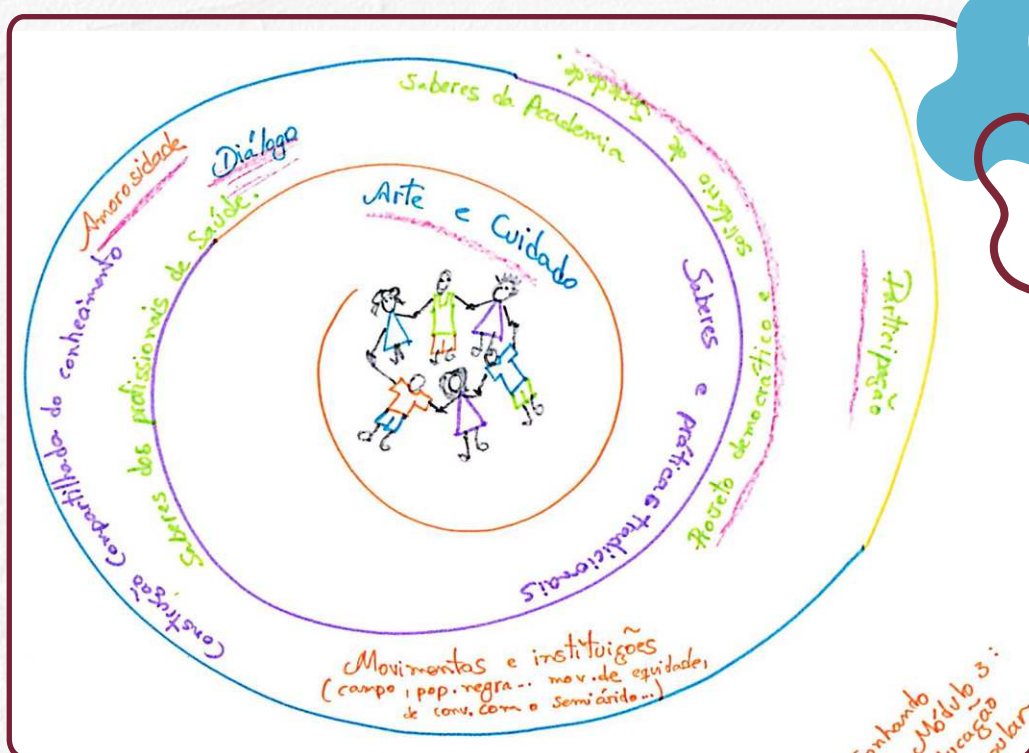 Arte e Cuidado
Diálogo
Amorosidade
Saberes da Academia
Saberes dos profissionais de Saúde.
Saberes e práticas tradicionais
Construção Compartilhada do conhecimento
Projeto democrático e solidário de Sociedade.
Participação
Movimentos e instituições
(campo, pop. negra... mov. de equidade,
de conv. com o semiárido...)
Módulo 3: